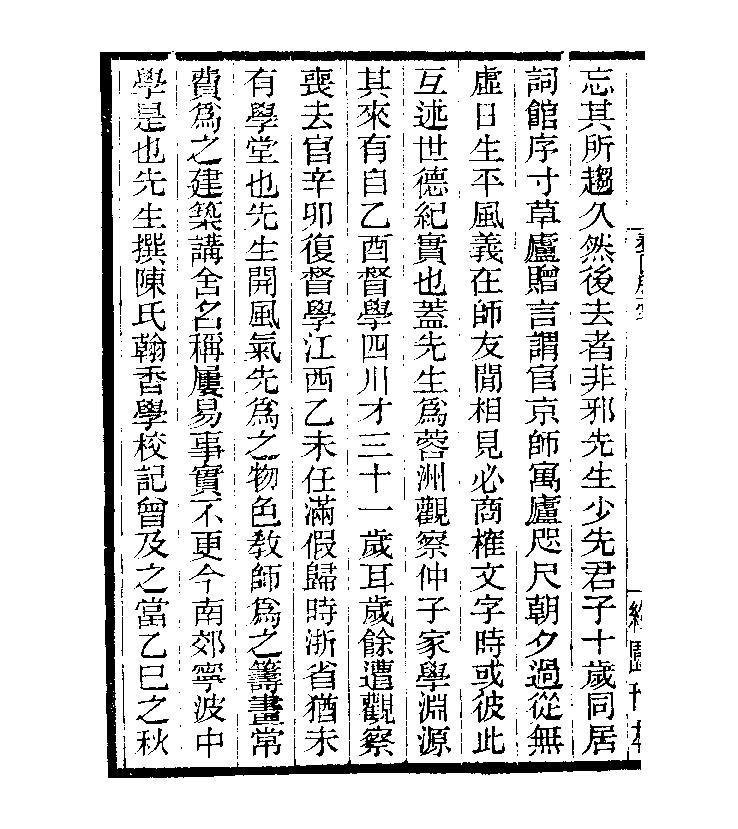 忘其所趨久然後去者非邪先生少先君子十歲同居
詞館序寸草廬贈言謂官京師寓廬咫尺朝夕過從無
虛日生平風義在師友間相見必商榷文字時或彼此
互述世德紀實也蓋先生爲蓉洲觀察仲子家學淵源
其來有自乙酉督學四川才三十一歲耳歲餘遭觀察
喪去官辛卯復督學江西乙未任滿假歸時浙省猶未
有學堂也先生開風氣先爲之物色教師爲之籌畫常
費爲之建築講舍名稱屢易事實不更今南郊寧波中
學是也先生撰陳氏翰香學校記曾及之當乙巳之秋